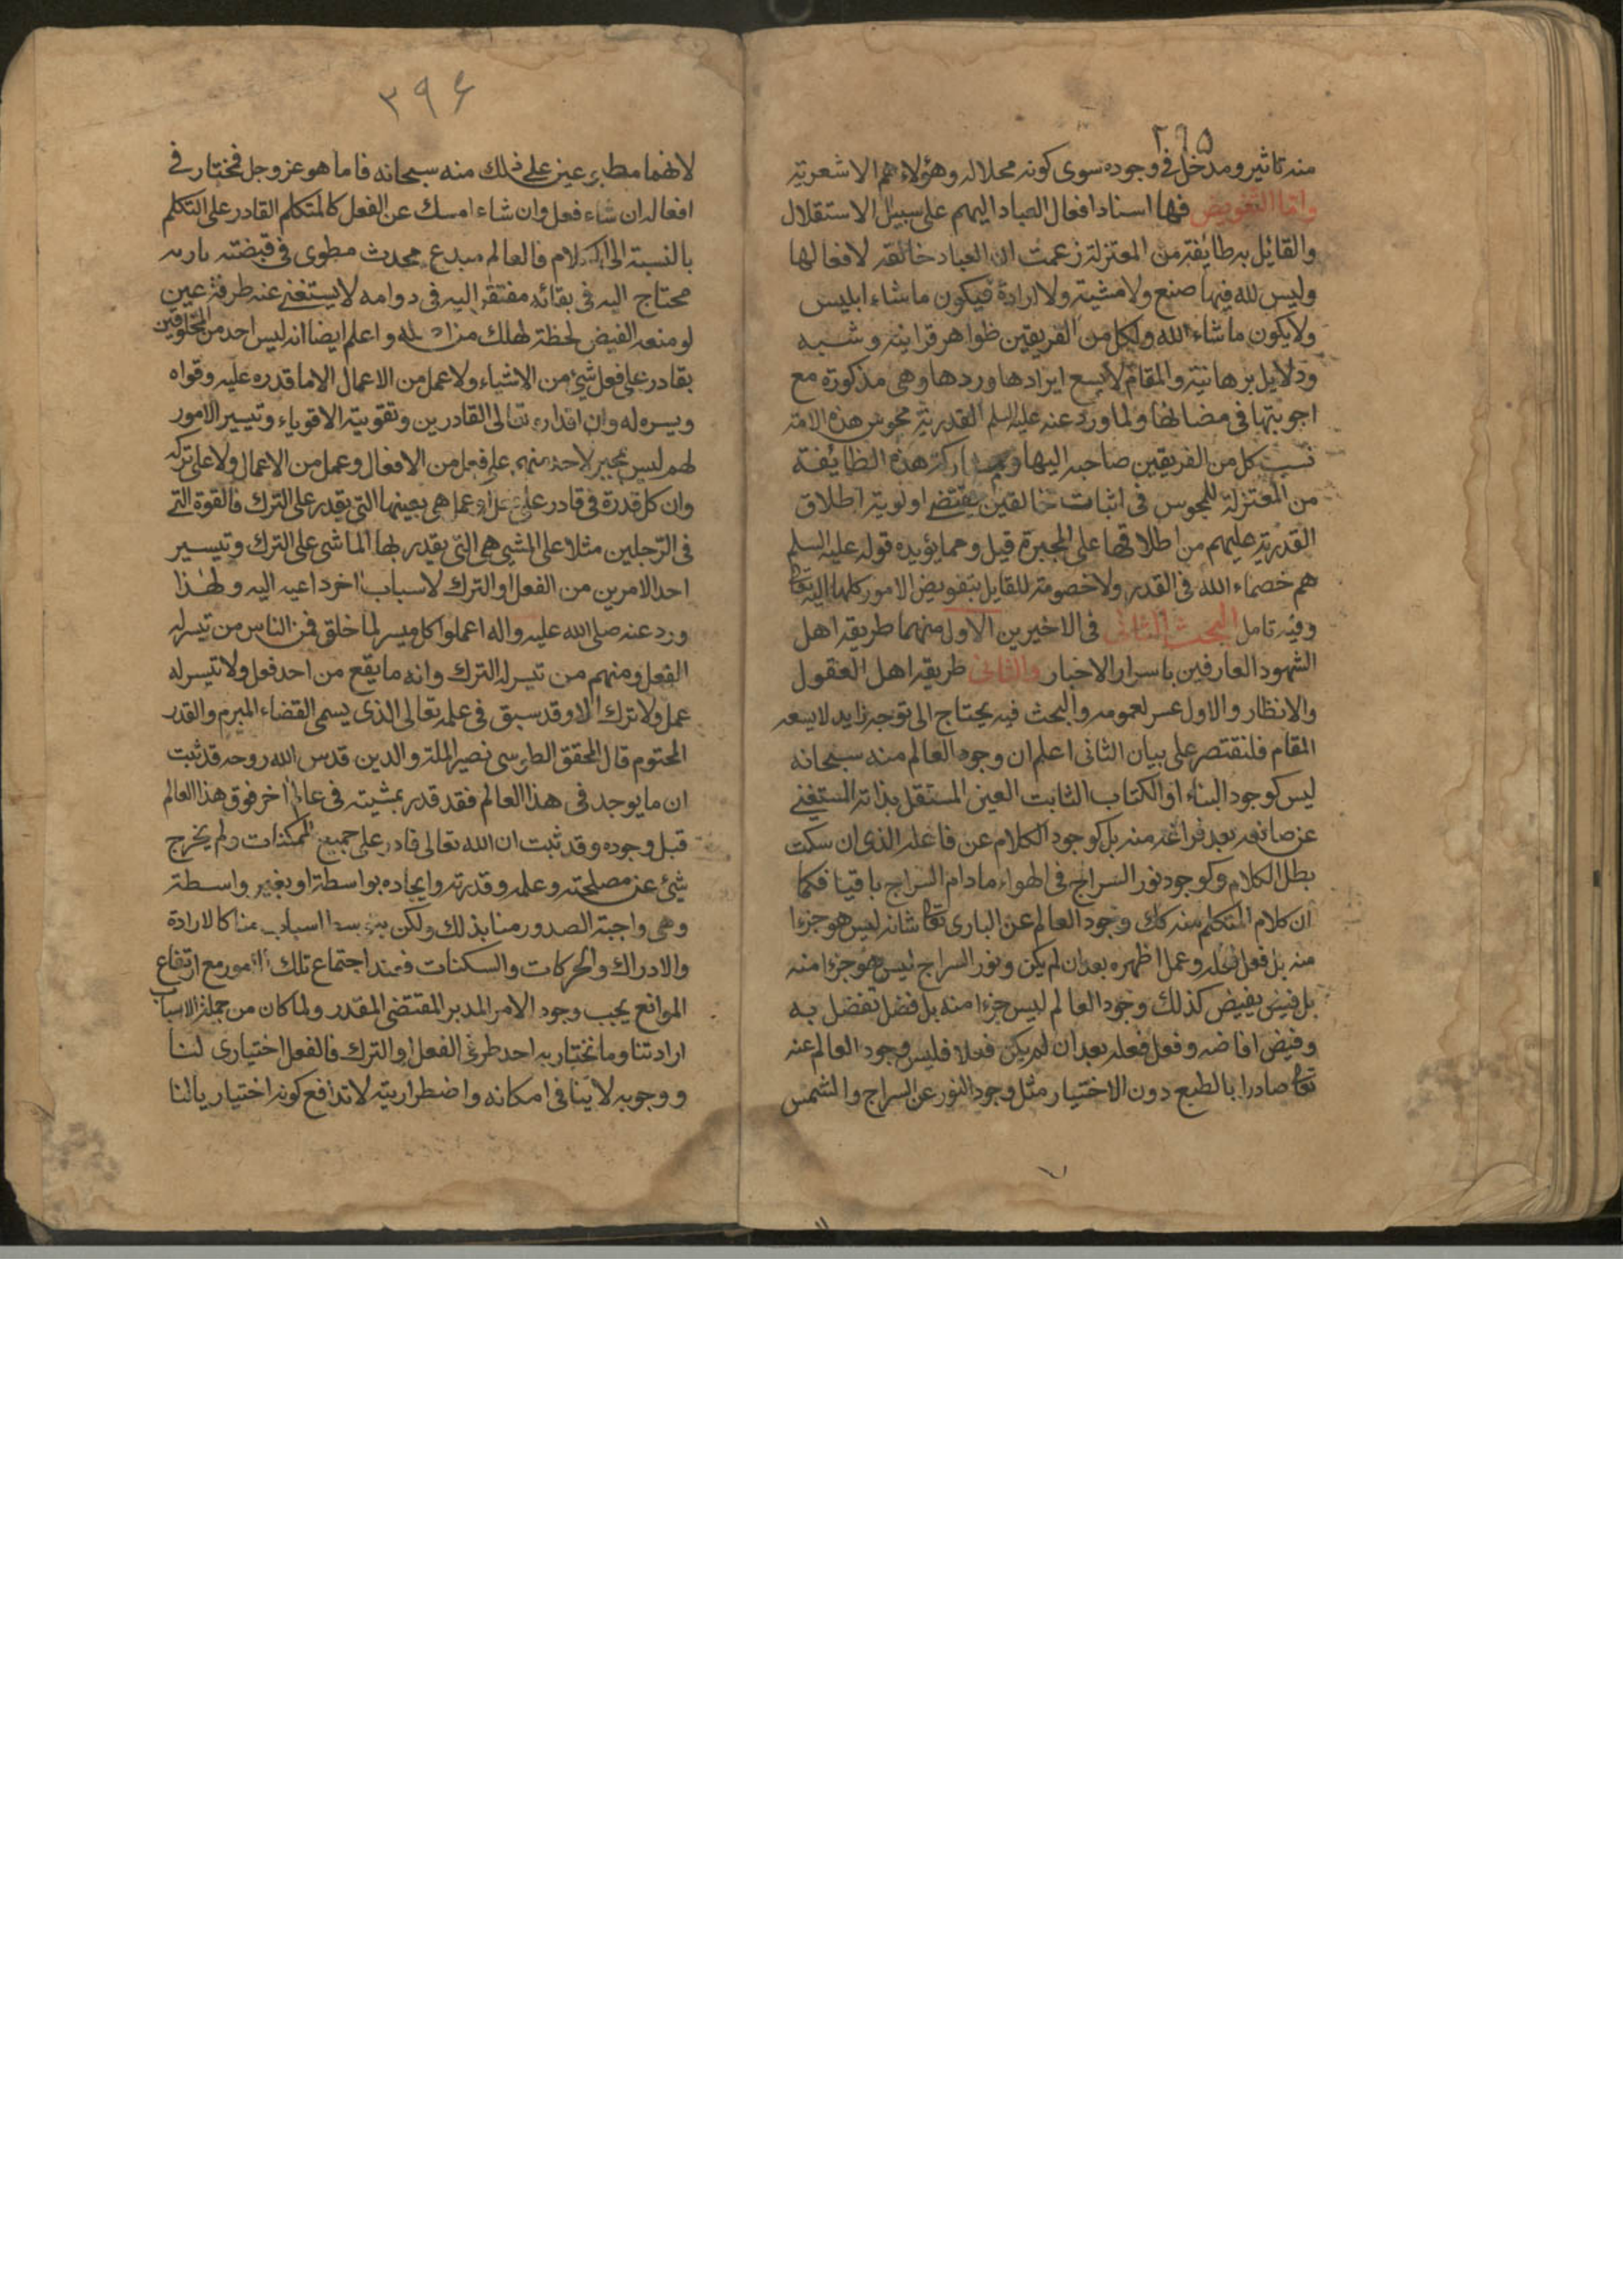 ٢٩٥
منه تاثير ومدخل في وجوده سوى كونه محلا له وهؤلاء هم الاشعرية
واما التفويض فهو اسناد افعال العباد اليهم على سبيل الاستقلال
والقايل به طايفة من المعتزلة زعمت ان العباد خالقة لافعالها
وليس لله فيها صنع ولا مشية ولا ارادة فيكون ما شاء ابليس
ولا يكون ما شاء الله ولكل من الفريقين ظواهر قرانية وشبه
ودلايل برهانية والمقام لا يسع ايرادها وردها وهى مذكورة مع
اجوبتها فى مضانها ولما ورد عنه عليه السلم القدرية مجوس هذه الامة
نسب كل من الفريقين صاحبه اليها هذه الطايفة
من المعتزلة للمجوس فى اثبات خالقين يقتضى اولوية اطلاق
القدرية عليهم من اطلاقها على المجبرة قيل ومما يؤيده قوله عليه السلم
هم خصماء الله فى القدر ولا خصومة للقايل بتفويض الامور كلها اليه تعالى
وفيه تامل البحث الثانى فى الاخيرين الاول منهما طريقه اهل
الشهود العارفين باسرار الاخبار والثانى طريقه اهل العقول
والانظار والاول عسر لعمومه والبحث فيه يحتاج الى توجه زايد لا يسعه
المقام فلنقتصر على بيان الثانى اعلم ان وجود العالم منه سبحانه
ليس كوجود البناء او الكتاب الثابت العين المستقل بذاته المستغنى
عن صانعه بعد فراغه منه بل كوجود الكلام عن فاعله الذى ان سكت
بطل الكلام وكوجود نور السراج فى الهواء مادام السراج باقيا فكما
ان كلام المتكلم منه كك وجود العالم عن البارى تعالى شانه ليس هو جزءا
منه بل فعل فعله وعمل اظهره بعد ان لم يكن ونور السراج ليس هو جزءا منه
بل فيض يفيض كذلك وجود العالم ليس جزءا منه بل فضل تفضل به
وفيض افاضه وفعل فعله بعد ان لم يكن فعلا فليس وجود العالم عنه
تعالى صادرا بالطبع دون الاختيار مثل وجود النور عن السراج والشمس
٣٩۶
لانهما مطبوعين على ذلك منه سبحانه فاما هو عز وجل فمختار فى
افعاله ان شاء فعل وان شاء امسك عن الفعل كالمتكلم القادر على التكلم
بالنسبة الى الكلام فالعالم مبدع محدث مطوى فى قبضته باريه
محتاج اليه فى بقائه مفتقر اليه فى دوامه لا يستغنى عنه طرفة عين
لو منعه الفيض لحظة لهلك واعلم ايضا انه ليس احد من المخلوقين
بقادر على فعل شئ من الاشياء ولا عمل من الاعمال الا ما قدره عليه وقواه
ويسره له وان اقداره تعالى القادرين وتقويته الاقوياء وتيسير الامور
لهم ليس بجبر لاحد منهم على فعل من الافعال وعمل من الاعمال ولا على تركه
وان كل قدرة فى قادر على عمل هى بعينها التى يقدر على الترك فالقوة التى
فى الرجلين مثلا على المشى هى التى يقدر بها الماشى على الترك وتيسير
احد الامرين من الفعل او الترك لاسباب اخر داعيه اليه ولهذا
ورد عنه صلى الله عليه واله اعملوا كل ميسر لما خلق فمن الناس من تيسر له
الفعل ومنهم من تيسر له الترك وانه ما يقع من احد فعل ولا تيسر له
عمل ولا ترك الا وقد سبق فى علمه تعالى الذى يسمى القضاء المبرم والقدر
المحتوم قال المحقق الطوسى نصير الملة والدين قدس الله روحه قد ثبت
ان ما يوجد فى هذا العالم فقد قدر بمشيته فى عالم اخر فوق هذا العالم
قبل وجوده وقد ثبت ان الله تعالى قادر على جميع الممكنات ولم يخرج
شئ عن مصلحته وعلمه وقدرته وايجاده بواسطة او بغير واسطة
وهى واجبة الصدور منا بذلك ولكن اسباب منا كالارادة
والادراك والحركات والسكنات فعند اجتماع تلك الامور مع ارتفاع
الموانع يجب وجود الامر المدبر المقتضى المقدر ولما كان من جملة الاسباب
ارادتنا وما نختار به احد طرفى الفعل او الترك فالفعل اختيارى لنا
ووجوبه لا ينافى امكانه واضطراريته لا تدافع كونه اختياريا لنا